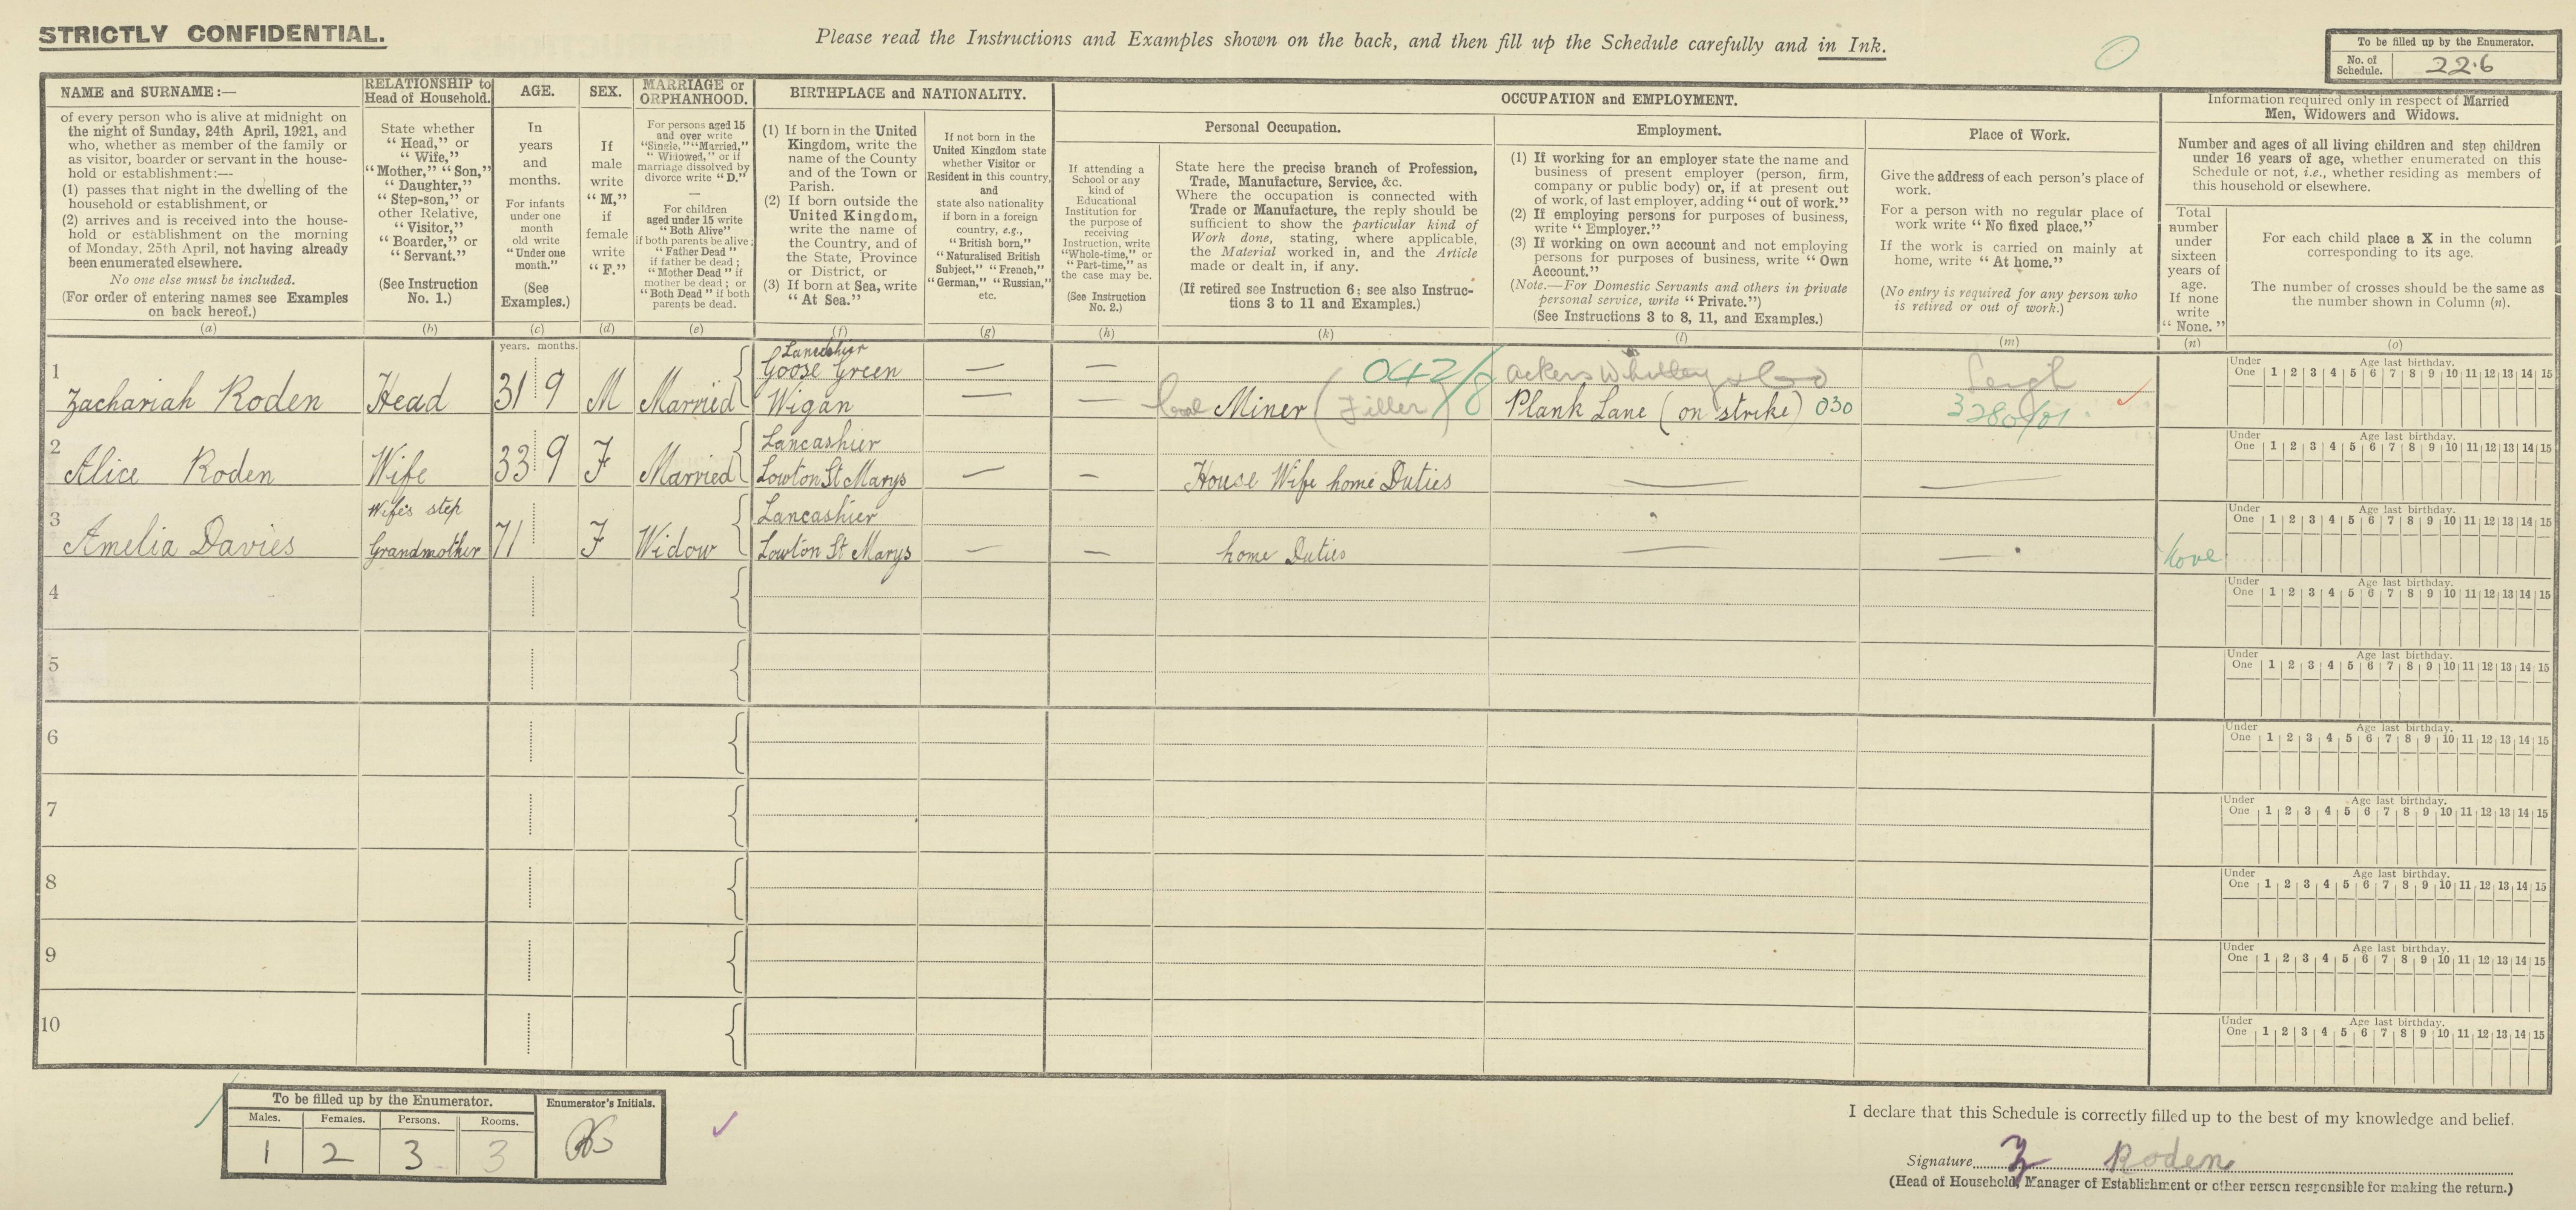 STRICTLY CONFIDENTIAL.
Please read the Instructions and Examples shown on the back, and then fill up the Schedule carefully and in Ink.
To be filled up by the Enumerator.
No. of Schedule. 226
NAME and SURNAME:—
of every person who is alive at midnight on
the night of Sunday, 24th April, 1921, and
who, whether as member of the family or
as visitor, boarder or servant in the house-
hold or establishment:—
(1) passes that night in the dwelling of the
household or establishment, or
(2) arrives and is received into the house-
hold or establishment on the morning
of Monday, 25th April, not having already
been enumerated elsewhere.
No one else must be included.
(For order of entering names see Examples
on back hereof.)
(a)
RELATIONSHIP to
Head of Household.
State whether
"Head," or
"Wife,"
"Mother," "Son,"
"Daughter,"
"Step-son," or
other Relative,
"Visitor,"
"Boarder," or
"Servant."
(See Instruction
No. 1.)
(b)
AGE.
In
years
and
months.
For infants
under one
month
old write
"Under one
month."
(See
Examples.)
(c)
SEX.
If
male
write
"M,"
if
female
write
"F."
(d)
MARRIAGE or
ORPHANHOOD.
For persons aged 15
and over write
"Single," "Married,"
"Widowed," or if
marriage dissolved by
divorce write "D."
—
For children
aged under 15 write
"Both Alive"
if both parents be alive;
"Father Dead"
if father be dead;
"Mother Dead" if
mother be dead; or
"Both Dead" if both
parents be dead.
(e)
BIRTHPLACE and NATIONALITY.
(1) If born in the United
Kingdom, write the
name of the County
and of the Town or
Parish.
(2) If born outside the
United Kingdom,
write the name of
the Country, and of
the State, Province
or District, or
(3) If born at Sea, write
"At Sea."
(f)
If not born in the
United Kingdom state
whether Visitor or
Resident in this country,
and
state also nationality
if born in a foreign
country, e.g.,
"British born,"
"Naturalised British
Subject," "French,"
"German," "Russian,"
etc.
(g)
OCCUPATION and EMPLOYMENT.
Personal Occupation.
If attending a
School or any
kind of
Educational
Institution for
the purpose of
receiving
Instruction, write
"Whole-time," or
"Part-time," as
the case may be.
(See Instruction
No. 2.)
(h)
State here the precise branch of Profession,
Trade, Manufacture, Service, &c.
Where the occupation is connected with
Trade or Manufacture, the reply should be
sufficient to show the particular kind of
Work done, stating, where applicable,
the Material worked in, and the Article
made or dealt in, if any.
(If retired see Instruction 6; see also Instruc-
tions 3 to 11 and Examples.)
(k)
Employment.
(1) If working for an employer state the name and
business of present employer (person, firm,
company or public body) or, if at present out
of work, of last employer, adding "out of work."
(2) If employing persons for purposes of business,
write "Employer."
(3) If working on own account and not employing
persons for purposes of business, write "Own
Account."
(Note.—For Domestic Servants and others in private
personal service, write "Private.")
(See Instructions 3 to 8, 11, and Examples.)
(l)
Place of Work.
Give the address of each person's place of
work.
For a person with no regular place of
work write "No fixed place."
If the work is carried on mainly at
home, write "At home."
(No entry is required for any person who
is retired or out of work.)
(m)
Information required only in respect of Married
Men, Widowers and Widows.
Number and ages of all living children and step children
under 16 years of age, whether enumerated on this
Schedule or not, i.e., whether residing as members of
this household or elsewhere.
Total
number
under
sixteen
years of
age.
If none
write
"None."
(n)
For each child place a X in the column
corresponding to its age.
The number of crosses should be the same as
the number shown in Column (n).
(o)
years. months.
Lancashier
1 Zachariah Roden Head 31 9 M Married Goose Green Wigan — — 042/8 Coal Miner (Filler) Ackers Whitley & Co Leigh
Plank Lane (on strike) 030 3280/01
Under One 1 2 3 4 5 6 7 8 9 10 11 12 13 14 15 Age last birthday.
2 Alice Roden Wife 33 9 F Married Lancashier Lowton St Marys — — House Wife home Duties — —
Under One 1 2 3 4 5 6 7 8 9 10 11 12 13 14 15 Age last birthday.
3 Amelia Davies Wife's step Grandmother 71 F Widow Lancashier Lowton St Marys — — home Duties — —
Under One 1 2 3 4 5 6 7 8 9 10 11 12 13 14 15 Age last birthday.
4
Under One 1 2 3 4 5 6 7 8 9 10 11 12 13 14 15 Age last birthday.
5
Under One 1 2 3 4 5 6 7 8 9 10 11 12 13 14 15 Age last birthday.
6
Under One 1 2 3 4 5 6 7 8 9 10 11 12 13 14 15 Age last birthday.
7
Under One 1 2 3 4 5 6 7 8 9 10 11 12 13 14 15 Age last birthday.
8
Under One 1 2 3 4 5 6 7 8 9 10 11 12 13 14 15 Age last birthday.
9
Under One 1 2 3 4 5 6 7 8 9 10 11 12 13 14 15 Age last birthday.
10
Under One 1 2 3 4 5 6 7 8 9 10 11 12 13 14 15 Age last birthday.
To be filled up by the Enumerator.
Males. Females. Persons. Rooms.
1 2 3 3
Enumerator's Initials.
I declare that this Schedule is correctly filled up to the best of my knowledge and belief.
Signature Z Roden
(Head of Household, Manager of Establishment or other person responsible for making the return.)